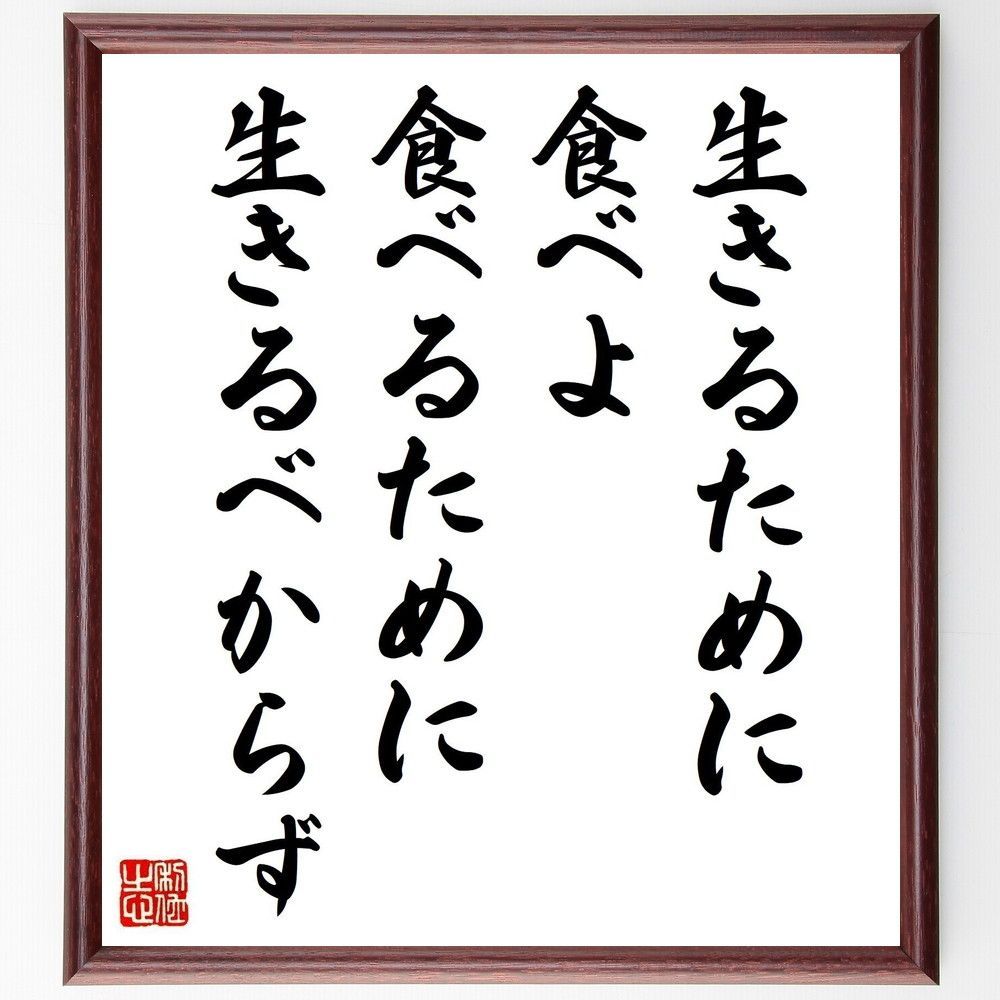 生きるために
食べよ
食べるために
生きるべからず